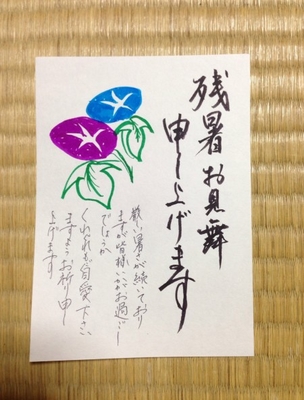 残暑お見舞
申し上げます
厳しい暑さが続いており
ますが皆様いかがお過ごし
でしょうか
くれぐれも自愛下さい
ますようお祈り申し
上げます